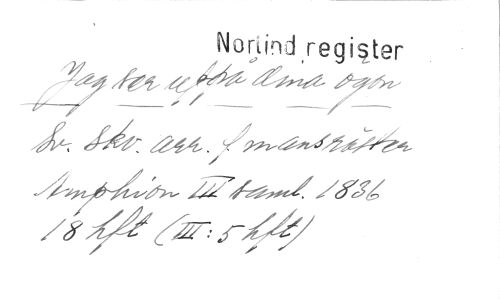 Norlind register
Jag ser uppå dina ögon
Sv. skv. arr. f. mansröster
Amphion III saml. 1836
18 hft (III: 5 hft)